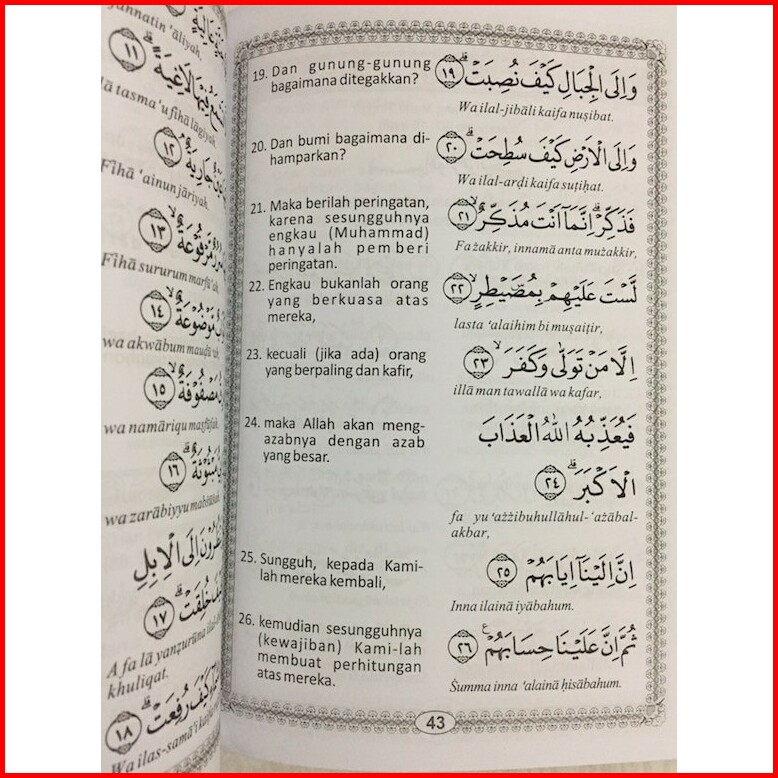 yannatin 'āliyah.
lā tasma'u fīhā lāgiyah.
Fīhā 'ainun jāriyah.
Fīhā sururum marfū'ah.
wa akwābum mauḍū'ah
wa namāriqu maṣfūfah.
wa zarābiyyu mabṡūṡah.
A fa lā yanẓurūna ilal-
khuliqat.
Wa ilas-samā'i kaifa
19. Dan gunung-gunung
bagaimana ditegakkan?
وَاِلَى الْجِبَالِ كَيْفَ نُصِبَتْۗ ١٩
Wa ilal-jibāli kaifa nuṣibat.
20. Dan bumi bagaimana di-
hamparkan?
وَاِلَى الْاَرْضِ كَيْفَ سُطِحَتْۗ ٢٠
Wa ilal-arḍi kaifa suṭiḥat.
21. Maka berilah peringatan,
karena sesungguhnya
engkau (Muhammad)
hanyalah pemberi
peringatan.
فَذَكِّرْۗ اِنَّمَآ اَنْتَ مُذَكِّرٌۙ ٢١
Fa żakkir, innamā anta mużakkir,
22. Engkau bukanlah orang
yang berkuasa atas
mereka,
لَّسْتَ عَلَيْهِمْ بِمُصَيْطِرٍۙ ٢٢
lasta 'alaihim bi muṣaiṭir,
23. kecuali (jika ada) orang
yang berpaling dan kafir,
اِلَّا مَنْ تَوَلّٰى وَكَفَرَۙ ٢٣
illā man tawallā wa kafar,
24. maka Allah akan meng-
azabnya dengan azab
yang besar.
فَيُعَذِّبُهُ اللّٰهُ الْعَذَابَ
الْاَكْبَرَۗ ٢٤
fa yu 'ażżibuhullāhul-'ażābal-
akbar,
25. Sungguh, kepada Kami-
lah mereka kembali,
اِنَّ اِلَيْنَآ اِيَابَهُمْ ٢٥
Inna ilainā iyābahum.
26. kemudian sesungguhnya
(kewajiban) Kami-lah
membuat perhitungan
atas mereka.
ثُمَّ اِنَّ عَلَيْنَا حِسَابَهُمْ ࣖ ٢٦
Ṡumma inna 'alainā ḥisābahum.
43